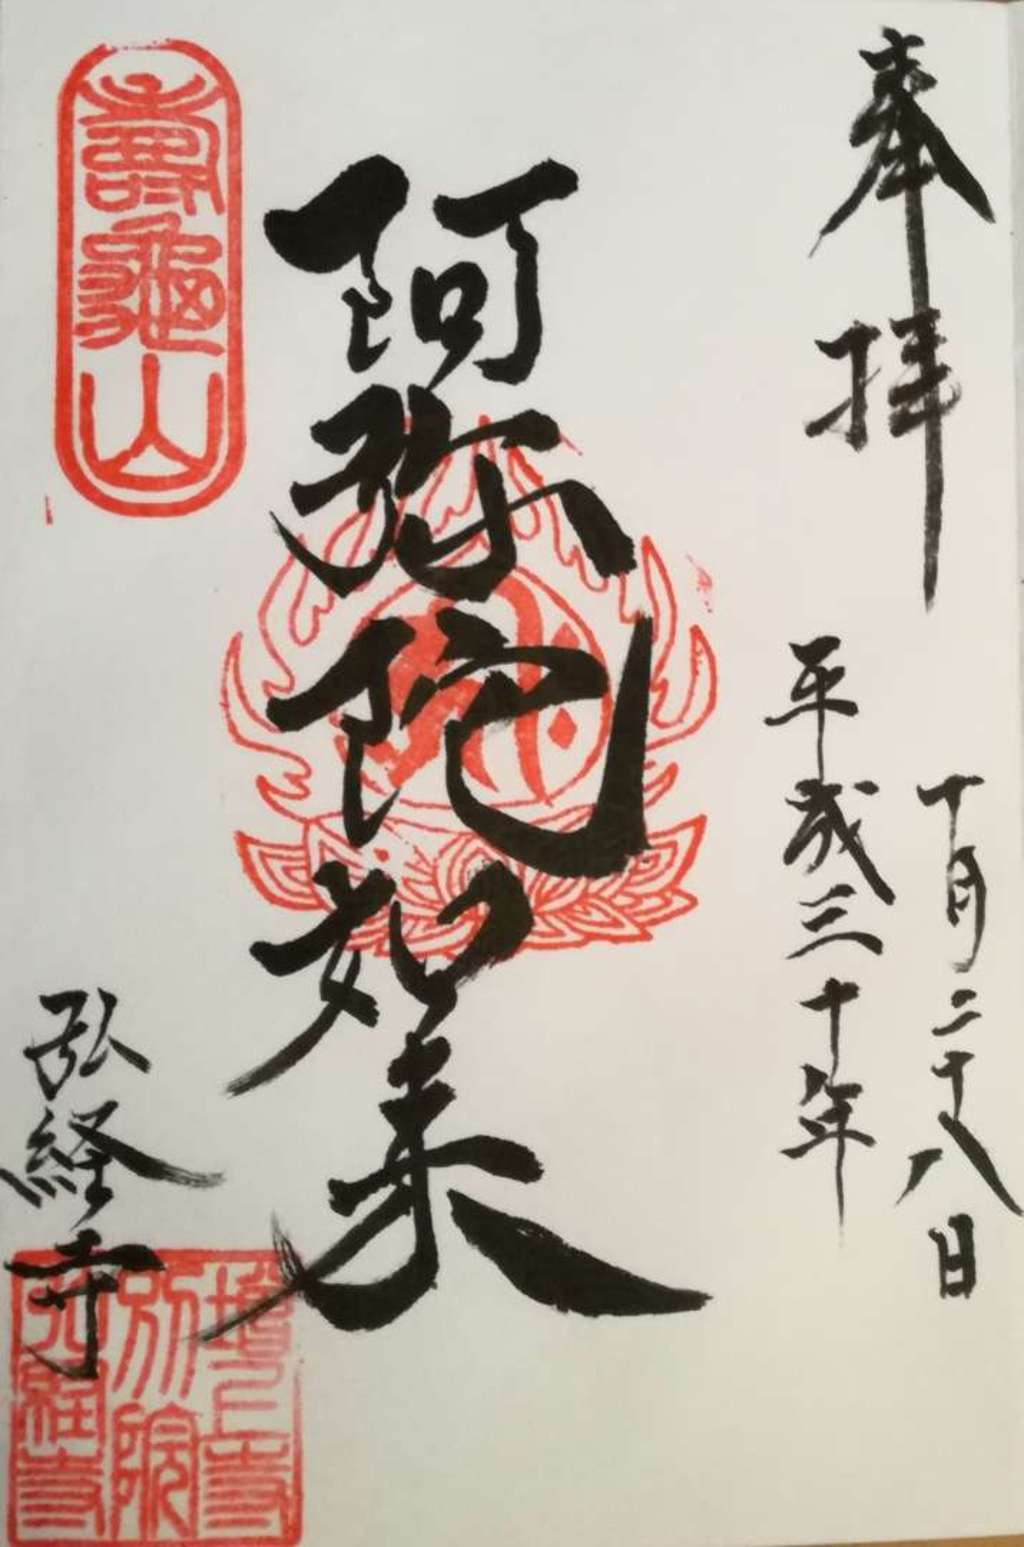 奉拝
十月二十八日
平成三十年
阿弥陀如来
壽龜山
弘経寺
増上寺
別院
弘経寺